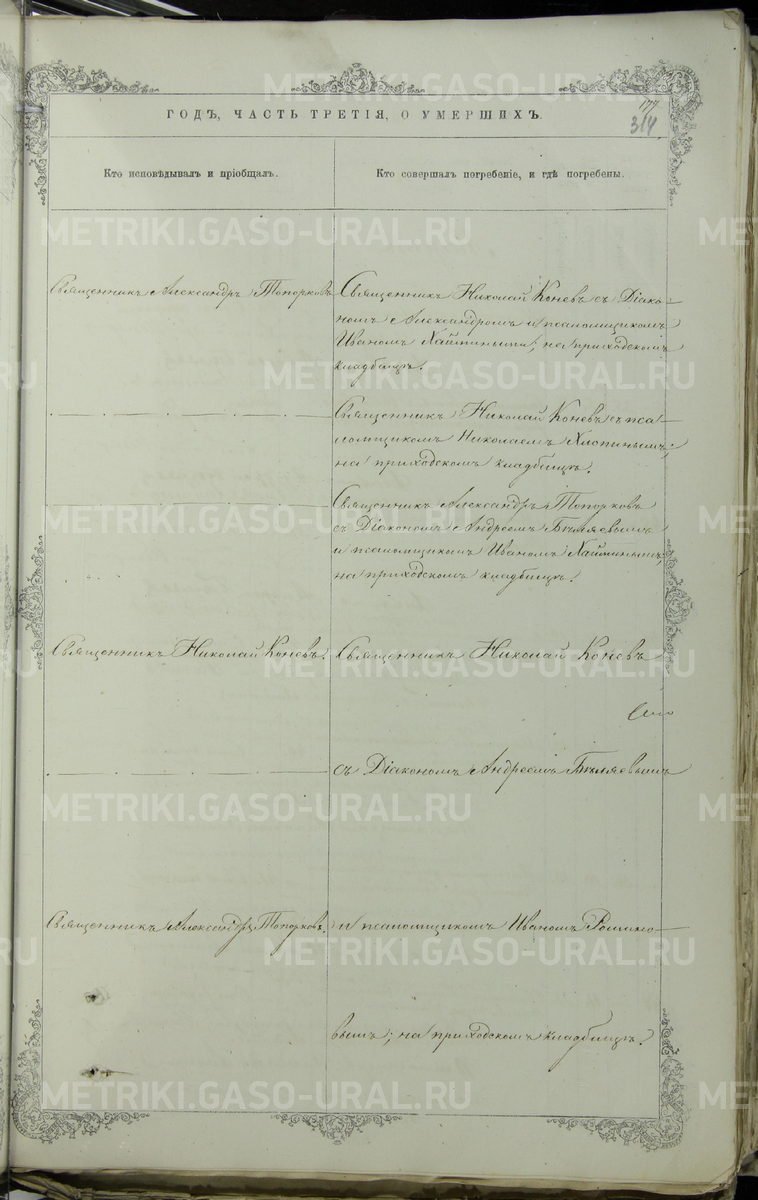 METRIKI.GASO-URAL.RU
ГОДЪ, ЧАСТЬ ТРЕТІЯ, О УМЕРШИХЪ.
177
314
Кто исповѣдывалъ и пріобщалъ.
Кто совершалъ погребеніе, и гдѣ погребены.
Священникъ Александръ Топорковъ
Священникъ Николай Коневъ съ Діако-
номъ Александромъ и псаломщикомъ
Иваномъ Хаминымъ; на приходскомъ
кладбищѣ.
Священникъ Николай Коневъ съ пса-
ломщикомъ Николаемъ Хлопинымъ;
на приходскомъ кладбищѣ.
Священникъ Александръ Топорковъ
съ Діакономъ Андреемъ Бѣляевымъ
и псаломщикомъ Иваномъ Хаминымъ,
на приходскомъ кладбищѣ.
Священникъ Николай Коневъ.
Священникъ Николай Коневъ
съ Діакономъ Андреемъ Бѣляевымъ
Священникъ Александръ Топорковъ.
и псаломщикомъ Иваномъ
вымъ; на приходскомъ кладбищѣ.